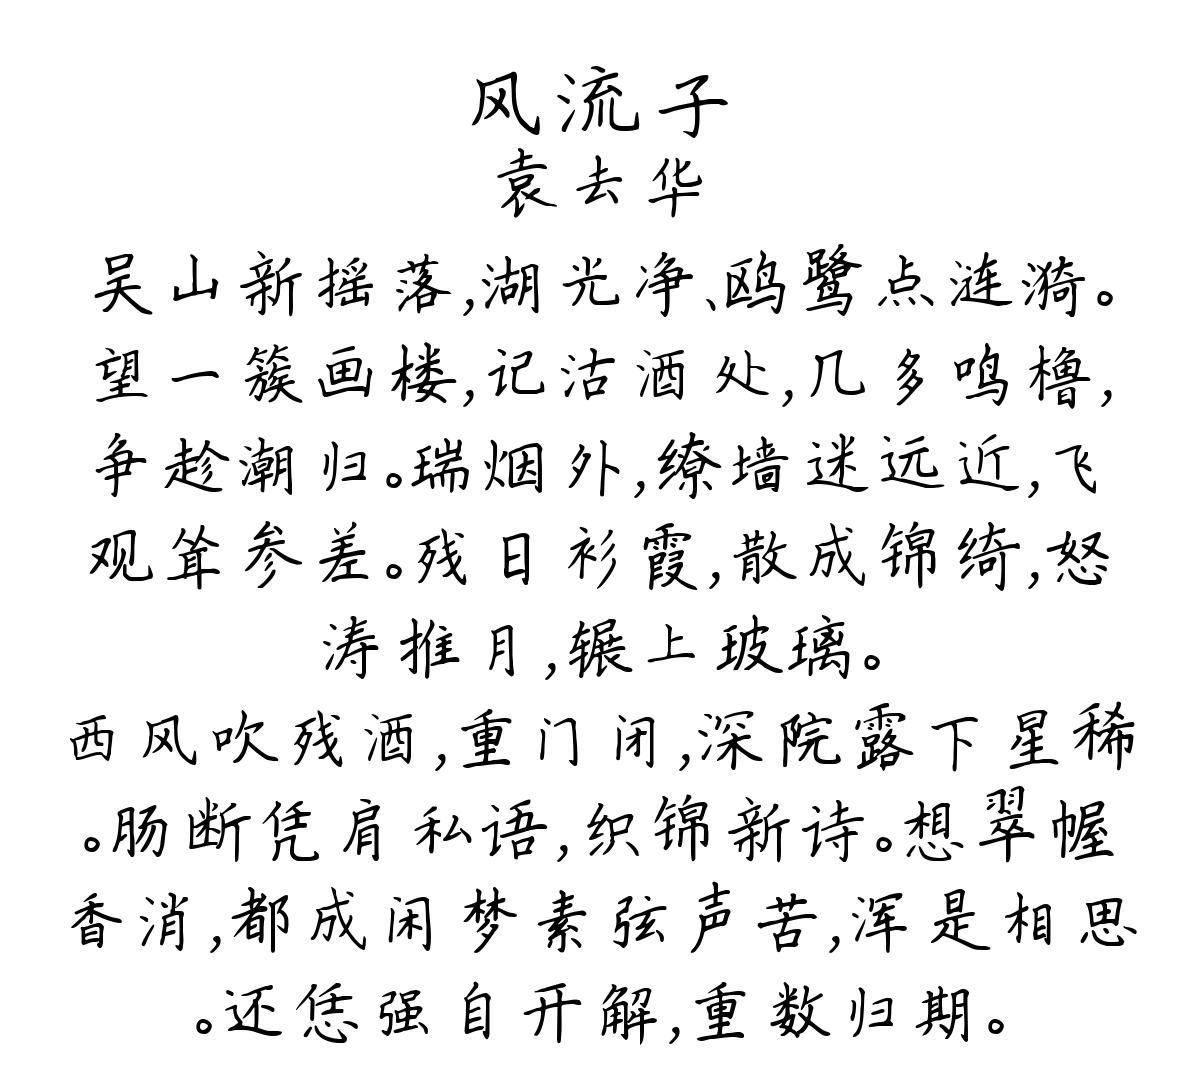 风流子
袁去华
吴山新摇落,湖光净、鸥鹭点涟漪。
望一簇画楼,记沽酒处,几多鸣橹,
争趁潮归。瑞烟外,缭墙迷远近,飞
观耸参差。残日衫霞,散成锦绮,怒
涛推月,辗上玻璃。
西风吹残酒,重门闭,深院露下星稀
。肠断凭肩私语,织锦新诗。想翠幄
香消,都成闲梦素弦声苦,浑是相思
。还恁强自开解,重数归期。